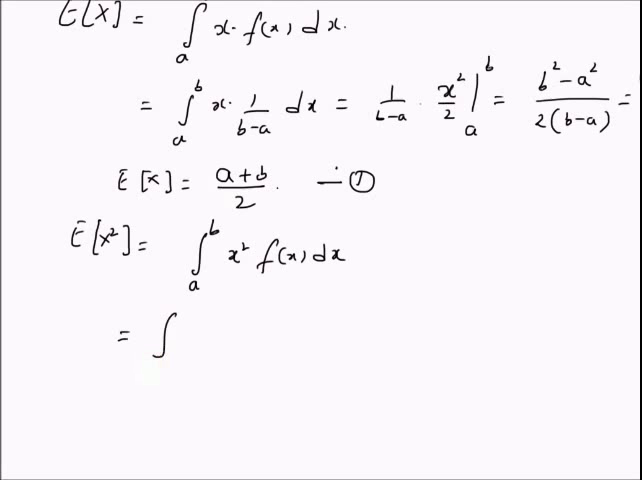 E[X] = ∫ₐ x. f(x) dx.
= ∫ₐᵇ x. 1/(b-a) dx = 1/(b-a) . x²/2 |ₐᵇ = (b²-a²)/(2(b-a)) =
E[x] = (a+b)/2. — ①
E[x²] = ∫ₐᵇ x² f(x) dx
= ∫